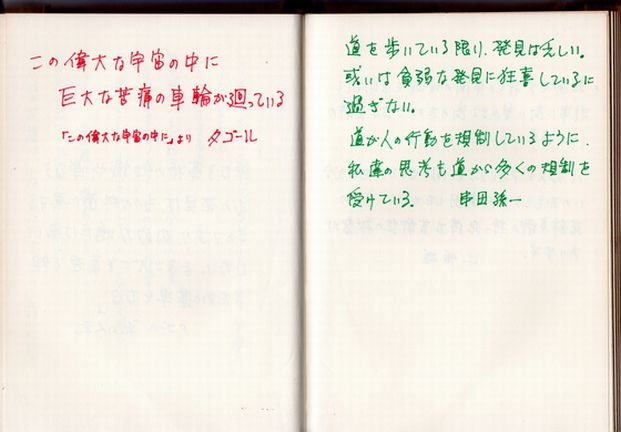 この偉大な宇宙の中に
巨大な苦痛の車輪が廻っている
「この偉大な宇宙の中に」より タゴール
道を歩いている限り、発見は乏しい。
或いは貧弱な発見に狂喜しているに
過ぎない。
道が人の行動を規制しているように、
私達の思考も道から多くの規制を
受けている。 串田孫一